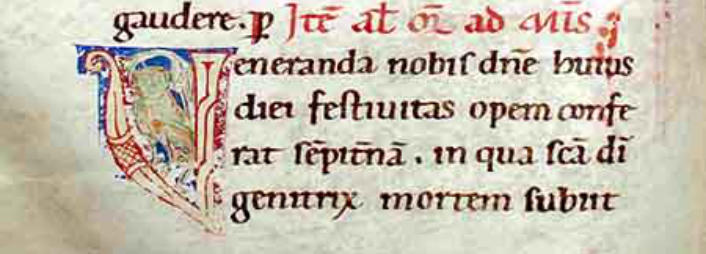 gaudere. ꝑ Itē al̄ oꝛ̄ ad mis̄
Veneranda nobiſ dn̄e huius
diei feſtiuitas opem confe
rat ſēpit̄nā. in qua ſcā dī
genitrix mortem ſubiit